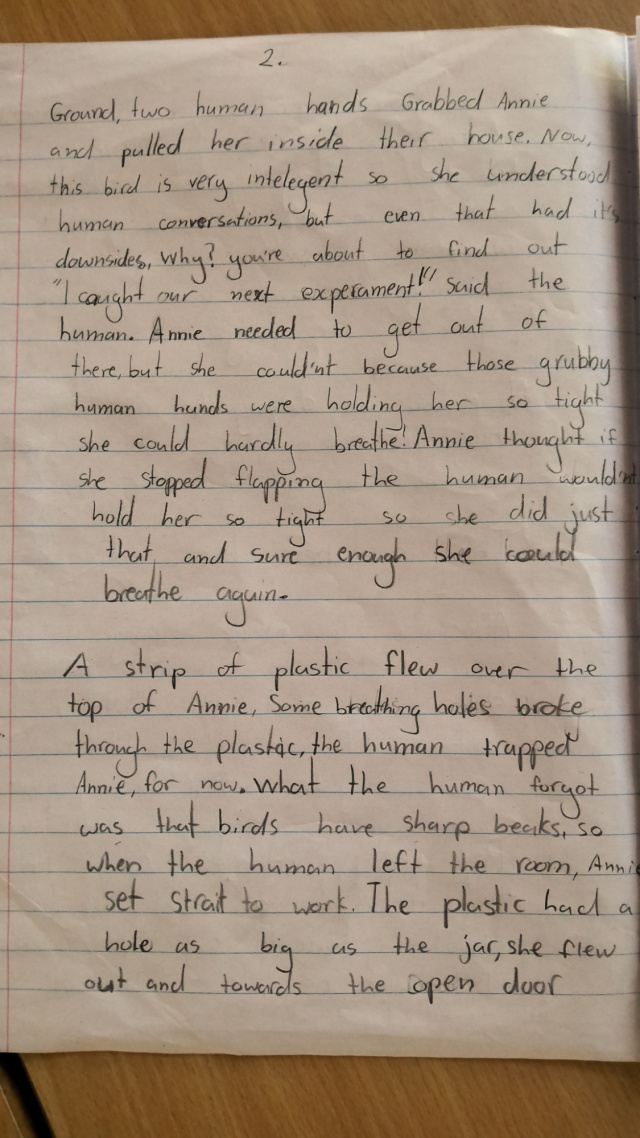 2.
Ground, two human hands Grabbed Annie
and pulled her inside their house. Now,
this bird is very intelegent so she understood
human conversations, but even that had it's
downsides, Why? you're about to find out
"I caught our next experament!" said the
human. Annie needed to get out of
there, but she could'nt because those grubby
human hands were holding her so tight
she could hardly breathe! Annie thought if
she stopped flapping the human would'nt
hold her so tight so she did just
that, and sure enough she could
breathe again.
A strip of plastic flew over the
top of Annie, Some breathing holes broke
through the plastic, the human trapped
Annie, for now. What the human forgot
was that birds have sharp beaks, so
when the human left the room, Annie
set strait to work. The plastic had a
hole as big as the jar, she flew
out and towards the open door